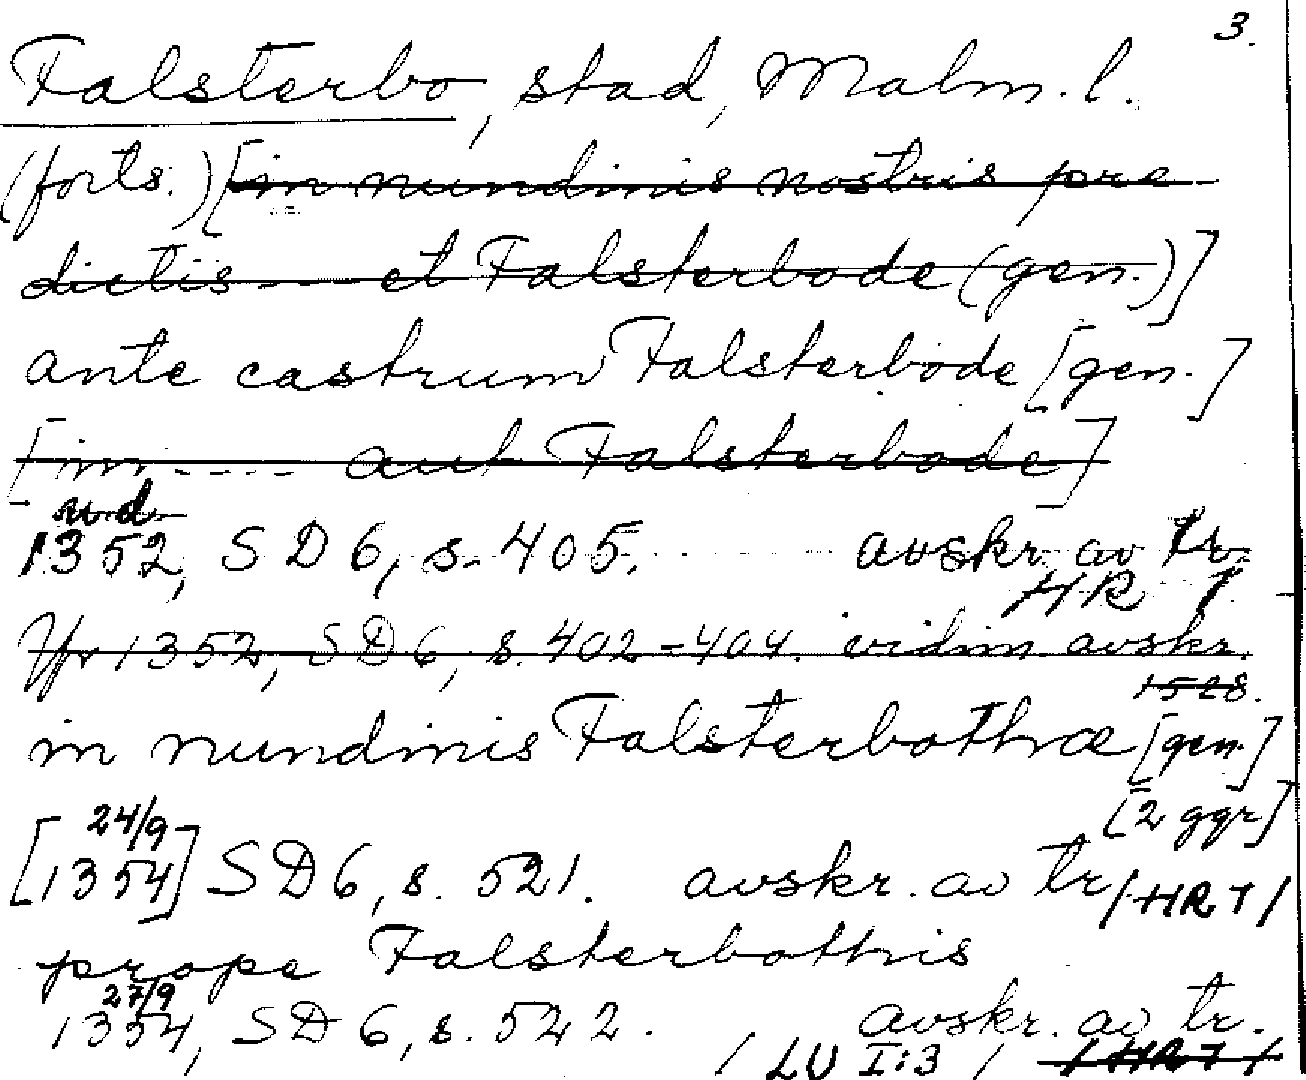 3.
Falsterbo, stad, Malm. l.
(forts.) [in nundinis nostris pre
dictis --- et Falsterbode (gen.)]
ante castrum Falsterbode [gen.]
[inn ---- aut Falsterbode]
u.d.
1352, SD 6, s. 405. avskr. av tr.
HR T
Jfr 1352, SD 6, s. 402-404. vidim. avskr.
1528.
in nundinis Falsterbothæ [gen.]
(2 ggr]
24/9
[1354] SD 6, s. 521. avskr. av tr /HR T/
prope Falsterbothis
27/9
1354, SD 6, s. 522. avskr. av tr.
/ LU I:3 / /HR T/